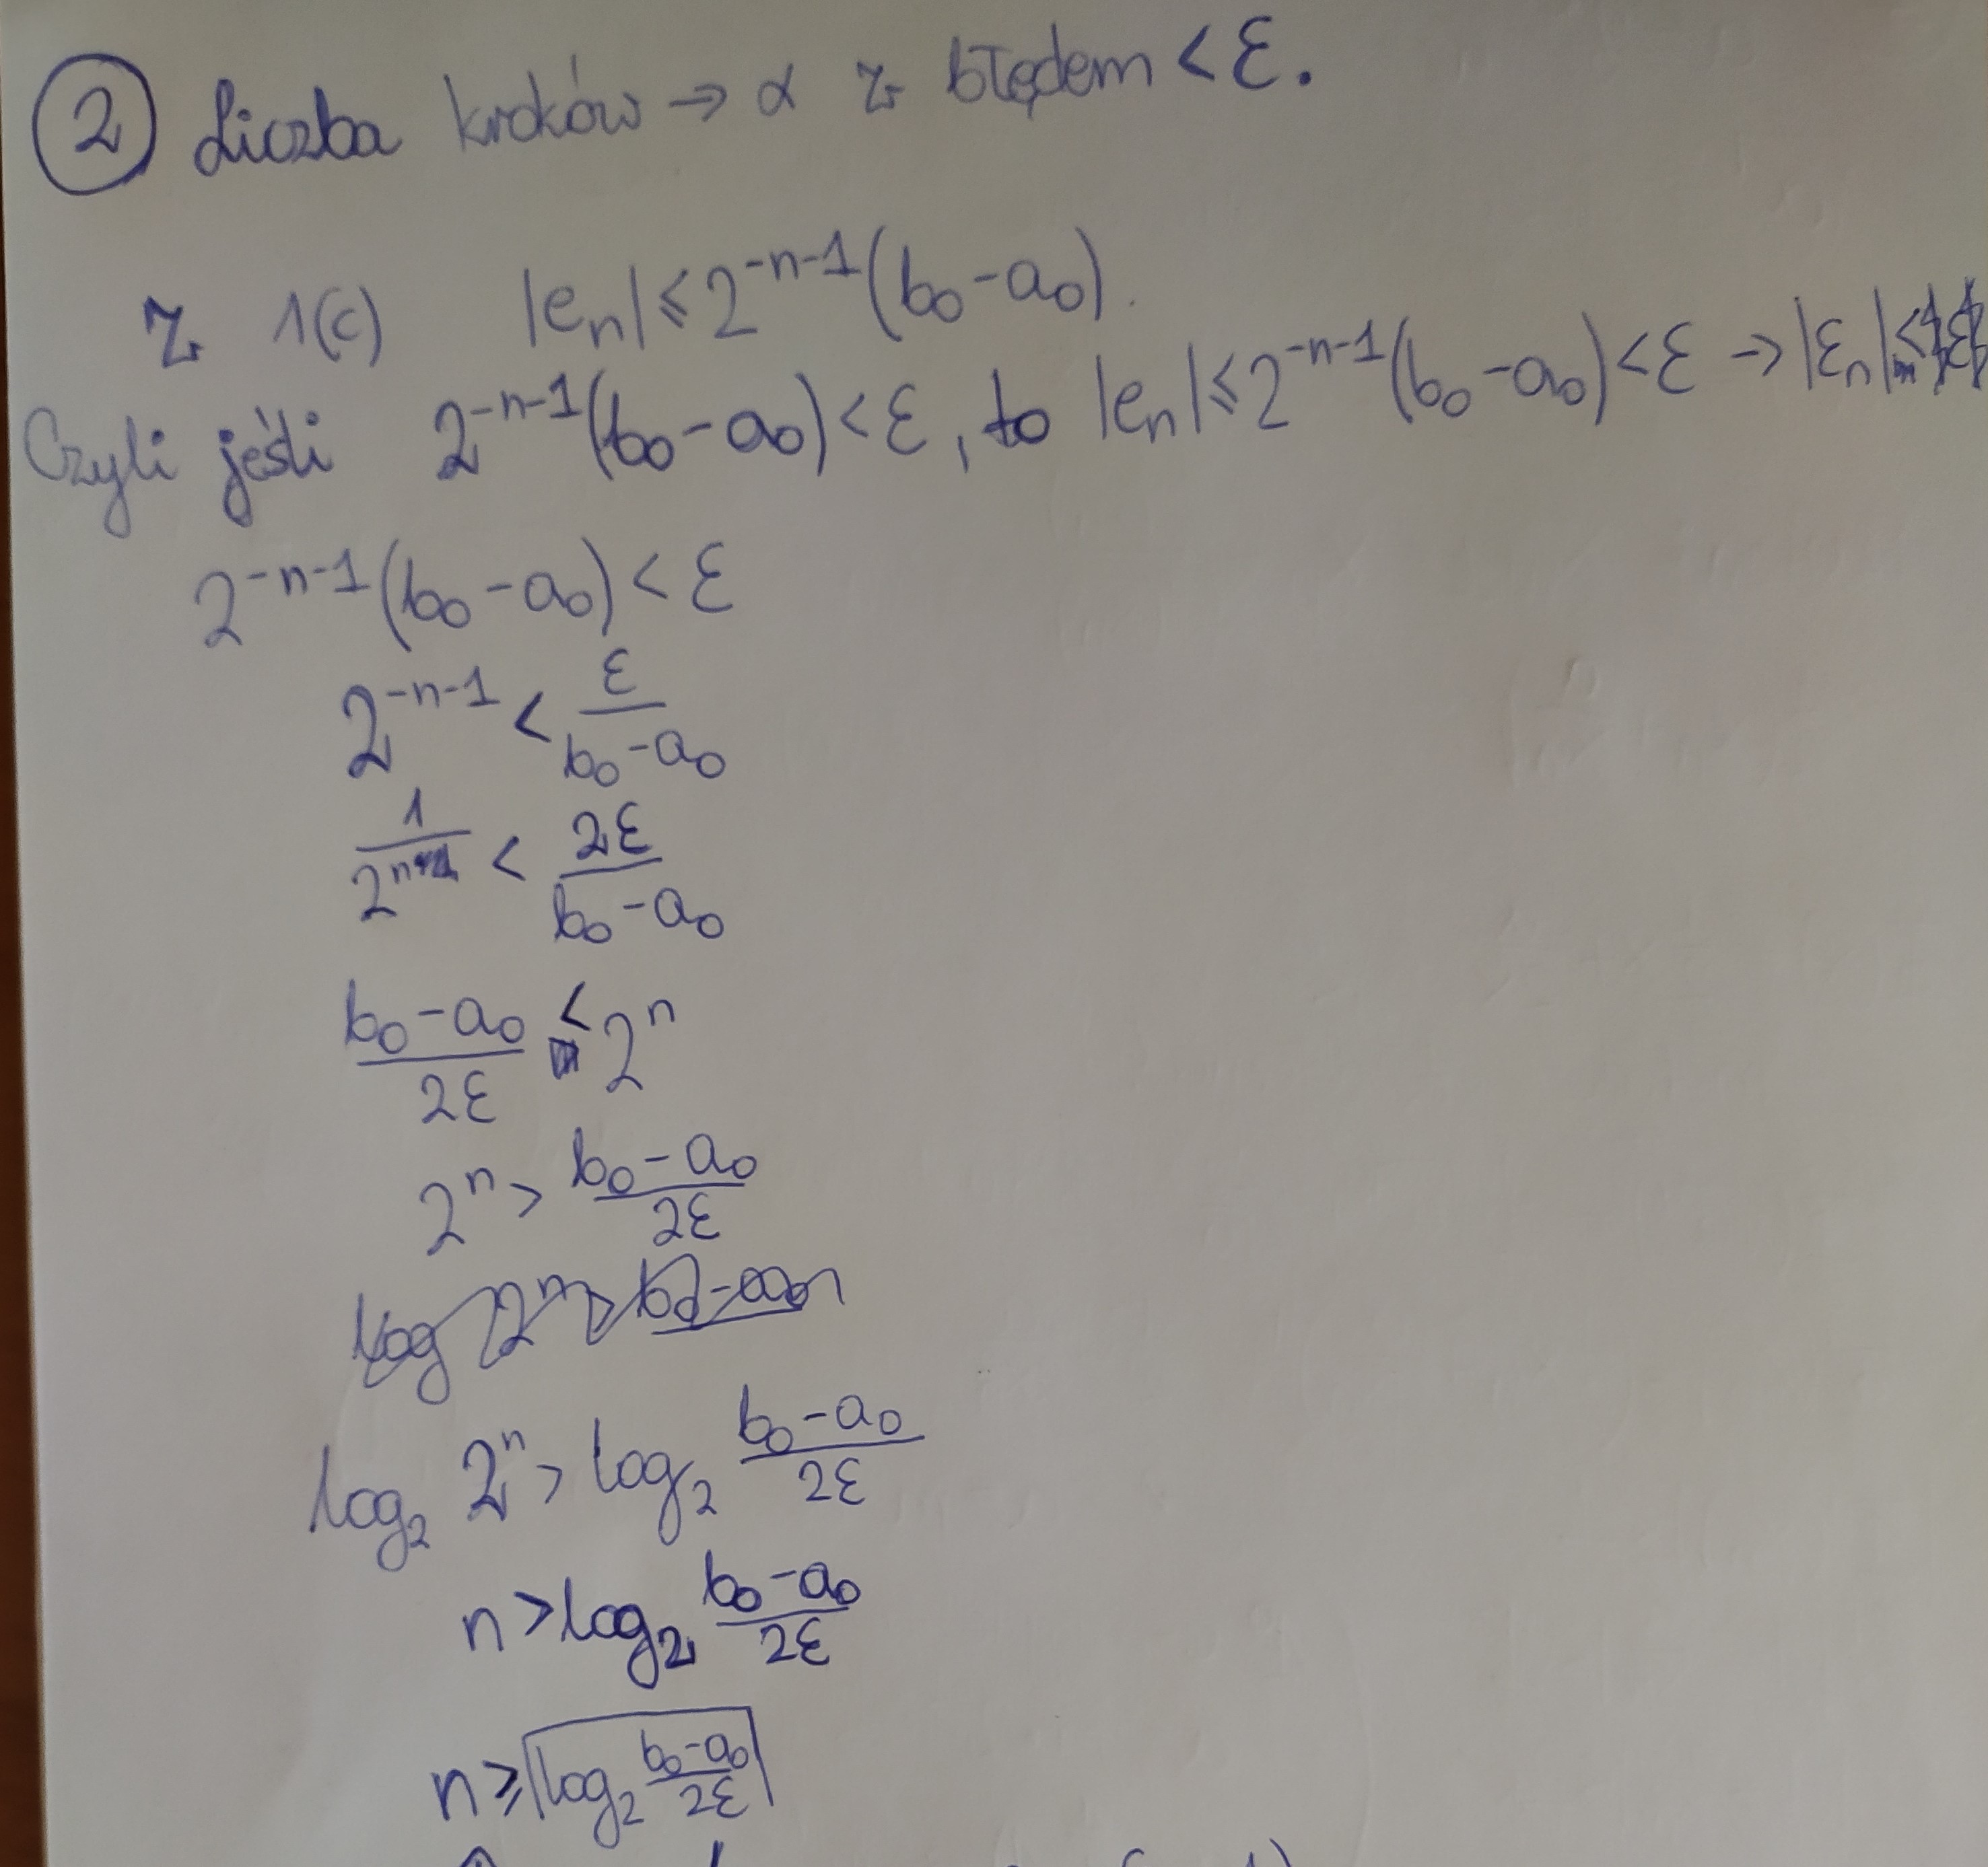 ② Liczba kroków → α z błędem < ε.
z 1(c) |eₙ| ≤ 2^{-n-1}(b₀-a₀).
Czyli jeśli 2^{-n-1}(b₀-a₀) < ε, to |eₙ| ≤ 2^{-n-1}(b₀-a₀) < ε → |εₙ| <
2^{-n-1}(b₀-a₀) < ε
2^{-n-1} < ε/(b₀-a₀)
1/2ⁿ < 2ε/(b₀-a₀)
(b₀-a₀)/2ε < 2ⁿ
2ⁿ > (b₀-a₀)/2ε
log₂ 2ⁿ > log₂ (b₀-a₀)/2ε
n > log₂ (b₀-a₀)/2ε
n ≥ ⌈log₂ (b₀-a₀)/2ε⌉